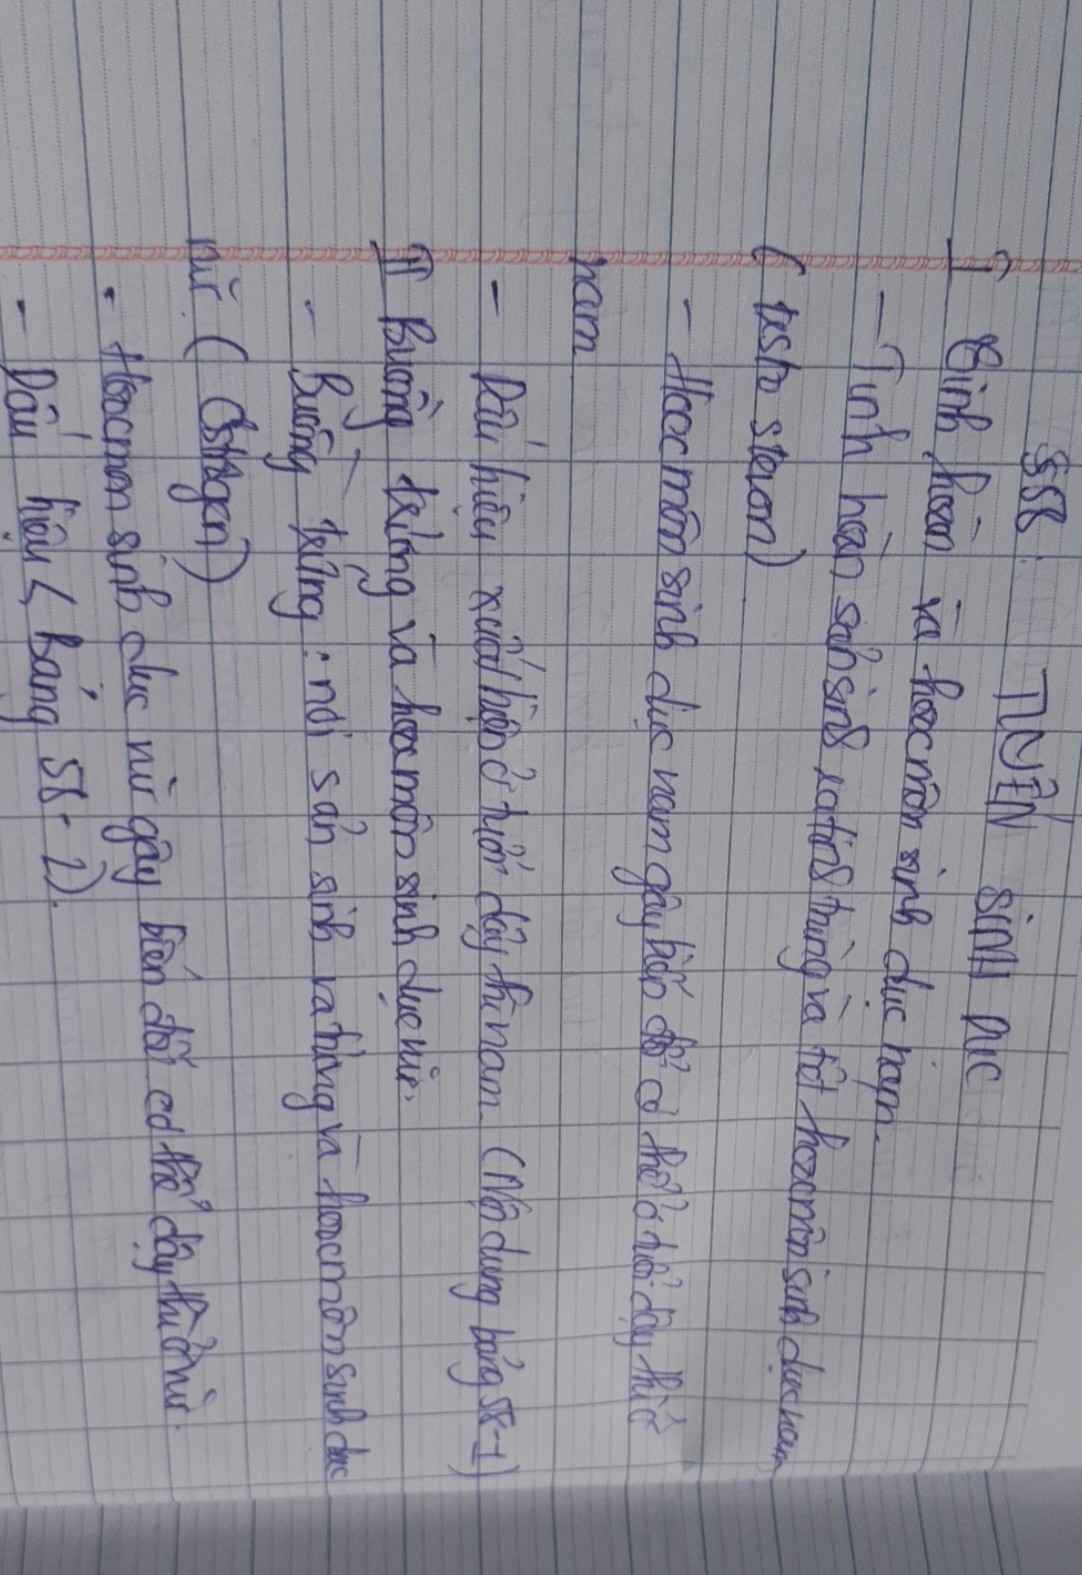 §58: TUYẾN SINH DỤC
I Tinh hoàn và hoocmôn sinh dục nam.
- Tinh hoàn sản sinh ra tinh trùng và tiết hoocmôn sinh dục nam
( testo steron)
- Hoocmôn sinh dục nam gây biến đổi cơ thể ở tuổi dậy thì ở
nam
- Dấu hiệu xuất hiện ở tuổi dậy thì nam. (Nội dung bảng 58-1)
II Buồng trứng và hoocmôn sinh dục nữ.
- Buồng trứng: nơi sản sinh ra trứng và hoocmôn sinh dục
nữ. ( Ostrogen)
- Hoocmon sinh dục nữ gây biến đổi cơ thể dậy thì ở nữ.
- Dấu hiệu ( bảng 58-2).